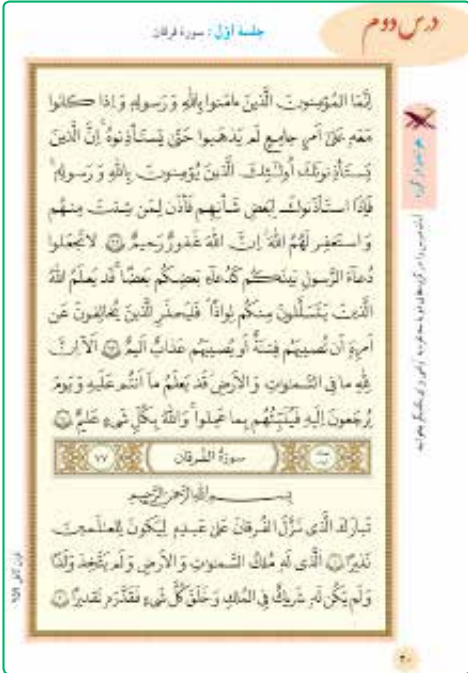 درس دوم
جلسهٔ اوّل: سورهٔ فرقان
اِنَّمَا المُؤمِنونَ الَّذينَ ءامَنوا بِاللّٰهِ وَ رَسولِهٖ وَ اِذا کانوا
مَعَهٗ عَلیٰ اَمرٍ جامِعٍ لَم یَذهَبوا حَتّیٰ یَستَأذِنوهُ اِنَّ الَّذینَ
یَستَأذِنونَکَ اُولٰئِکَ الَّذینَ یُؤمِنونَ بِاللّٰهِ وَ رَسولِهٖ
فَاِذَا استَأذَنوکَ لِبَعضِ شَأنِهِم فَأذَن لِمَن شِئتَ مِنهُم
وَ استَغفِر لَهُمُ اللّٰهَ اِنَّ اللّٰهَ غَفورٌ رَحیمٌ ﴿۶۲﴾ لا تَجعَلوا
دُعاءَ الرَّسولِ بَینَکُم کَدُعاءِ بَعضِکُم بَعضًا قَد یَعلَمُ اللّٰهُ
الَّذینَ یَتَسَلَّلونَ مِنکُم لِواذًا فَلیَحذَرِ الَّذینَ یُخالِفونَ عَن
اَمرِهٖ اَن تُصیبَهُم فِتنَةٌ اَو یُصیبَهُم عَذابٌ اَلیمٌ ﴿۶۳﴾ اَلا اِنَّ
لِلّٰهِ ما فِی السَّماواتِ وَ الاَرضِ قَد یَعلَمُ ما اَنتُم عَلَیهِ وَ یَومَ
یُرجَعونَ اِلَیهِ فَیُنَبِّئُهُم بِما عَمِلوا وَ اللّٰهُ بِکُلِّ شَیءٍ عَلیمٌ ﴿۶۴﴾
سورَةُ الفُرقان
۷۷
بِسمِ اللّٰهِ الرَّحمٰنِ الرَّحیمِ
تَبارَکَ الَّذی نَزَّلَ الفُرقانَ عَلیٰ عَبدِهٖ لِیَکونَ لِلعالَمینَ
نَذیرًا ﴿۱﴾ اَلَّذی لَهٗ مُلکُ السَّماواتِ وَ الاَرضِ وَ لَم یَتَّخِذ وَلَدًا
وَ لَم یَکُن لَهٗ شَریکٌ فِی المُلکِ وَ خَلَقَ کُلَّ شَیءٍ فَقَدَّرَهٗ تَقدیرًا ﴿۲﴾
۲۰